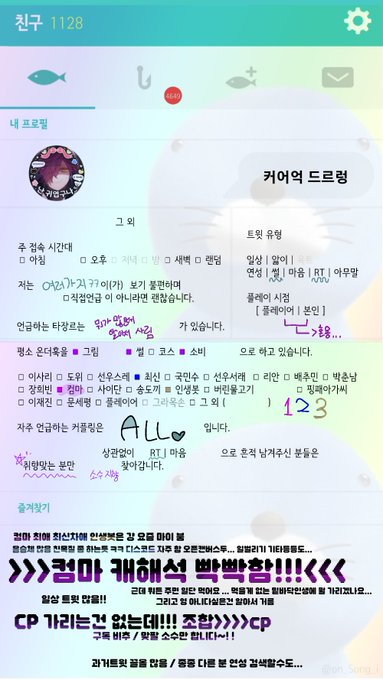 친구 1128
4649
내 프로필
난 귀엽구나
커어억 드르렁
그 외
주 접속 시간대
□ 아침 □ 오후 □ 저녁 □ 밤 □ 새벽 □ 랜덤
저는 여러가지?? 이(가) 보기 불편하며
□직접언급 이 아니라면 괜찮습니다.
언급하는 타장르는 뭐가 많은데 가 있습니다.
트윗 유형
일상 | 앓이 |
연성 | 썰 | 마음 | RT | 아무말
플레이 시점
[ 플레이어 | 본인 ]
평소 온더훅을 ■ 그림 ■ 썰 □ 코스 ■ 소비 으로 하고 있습니다.
□ 이사리 □ 도위 □ 선우스레 ■ 최신 □ 국민수 □ 선우서래 □ 리안 □ 배추민 □ 박춘남
□ 장희빈 ■ 컴마 □ 사이단 □ 송도끼 ■ 인생봇 □ 버린물고기 □ 핑패아가씨
□ 이재진 □ 문세평 □ 플레이어 □ 그라옥손 □ 그 외 ( )
123
자주 언급하는 커플링은 ALL 입니다.
상관없이 RT | 마음 으로 흔적 남겨주신 분들은
취향맞는 분만 찾아갑니다.
소수지향
즐겨찾기
컴마 최애 최신차애 인생봇은 걍 요즘 마이 붐
음슴체 많음 친목질 쫌 하는듯 ㅋㅋ 디스코드 자주 함 오픈캔버스두... 일벌리기 기타등등도...
>>>컴마 캐해석 빡빡함!!!<<<
일상 트윗 많음!!
근데 뭐든 주면 일단 먹어요 ... 먹을게 없는 밑바닥인생에 뭘 가리겠나요...
그리고 엥 아니다싶은건 알아서 거름
CP 가리는건 없는데!!! 조합>>>>cp
구독 비추 / 맞팔 소수만 합니다~!!
과거트윗 끌올 많음 / 종종 다른 분 연성 검색할수도...
@on_Song_i